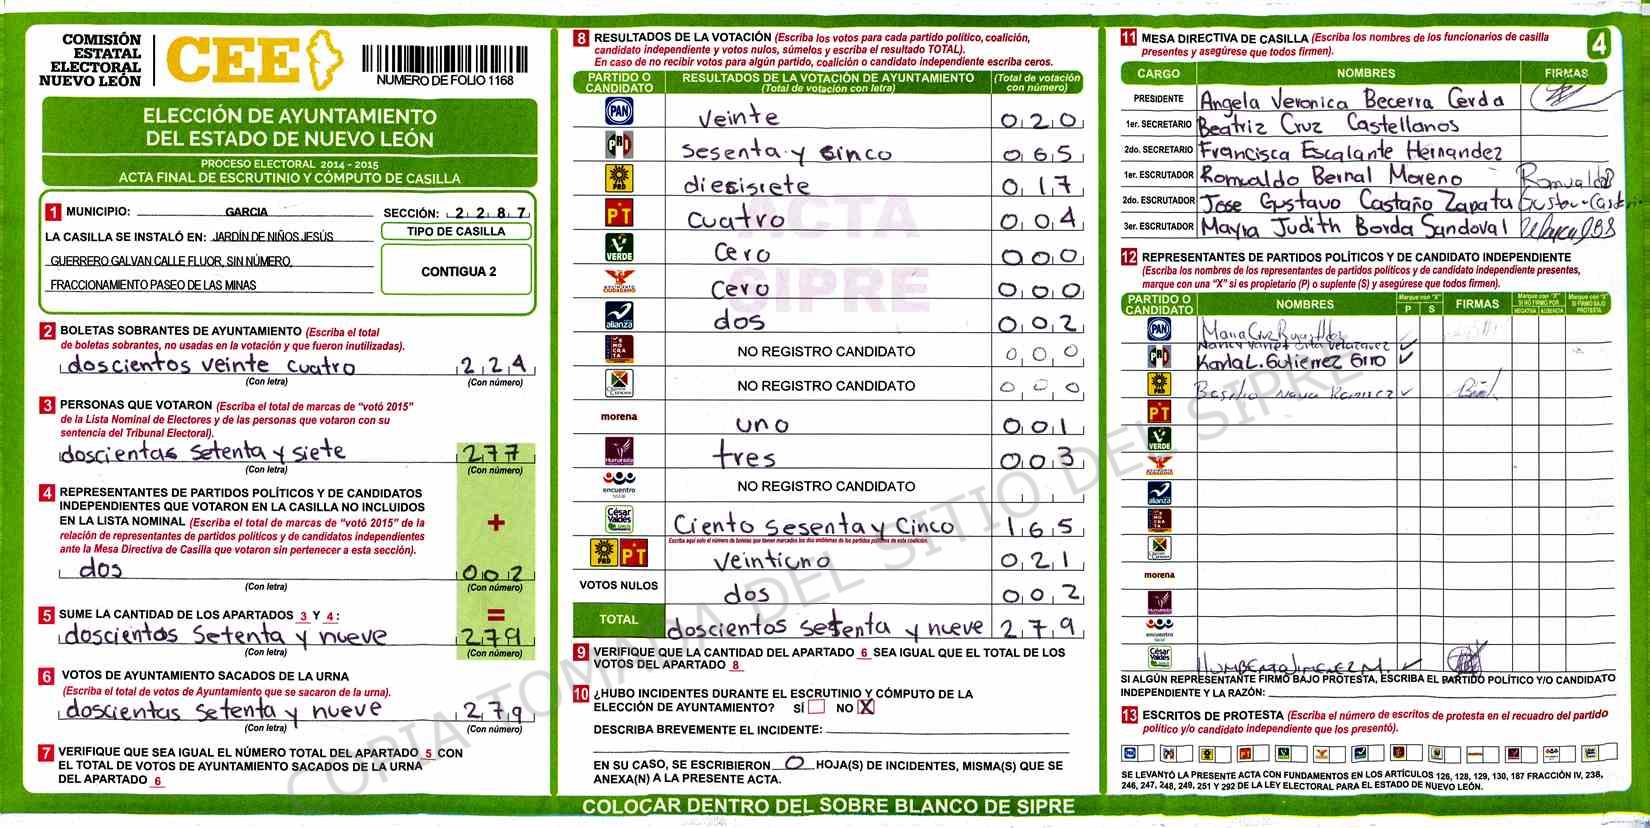 COMISIÓN
ESTATAL
ELECTORAL
NUEVO LEÓN
CEE
NUMERO DE FOLIO 1168
ELECCIÓN DE AYUNTAMIENTO
DEL ESTADO DE NUEVO LEÓN
PROCESO ELECTORAL 2014 - 2015
ACTA FINAL DE ESCRUTINIO Y CÓMPUTO DE CASILLA
1 MUNICIPIO: GARCIA SECCIÓN: 2 2 8 7
LA CASILLA SE INSTALÓ EN: JARDÍN DE NIÑOS JESÚS
GUERRERO GALVAN CALLE FLUOR, SIN NÚMERO,
FRACCIONAMIENTO PASEO DE LAS MINAS
TIPO DE CASILLA
CONTIGUA 2
2 BOLETAS SOBRANTES DE AYUNTAMIENTO (Escriba el total
de boletas sobrantes, no usadas en la votación y que fueron inutilizadas).
doscientos veinte cuatro 2 2 4
(Con letra) (Con número)
3 PERSONAS QUE VOTARON (Escriba el total de marcas de "votó 2015"
de la Lista Nominal de Electores y de las personas que votaron con su
sentencia del Tribunal Electoral).
doscientas setenta y siete 2 7 7
(Con letra) (Con número)
4 REPRESENTANTES DE PARTIDOS POLÍTICOS Y DE CANDIDATOS
INDEPENDIENTES QUE VOTARON EN LA CASILLA NO INCLUIDOS
EN LA LISTA NOMINAL (Escriba el total de marcas de "votó 2015" de la
relación de representantes de partidos políticos y de candidatos independientes
ante la Mesa Directiva de Casilla que votaron sin pertenecer a esta sección).
+
dos 0 0 2
(Con letra) (Con número)
=
5 SUME LA CANTIDAD DE LOS APARTADOS 3 Y 4:
doscientos setenta y nueve 2 7 9
(Con letra) (Con número)
6 VOTOS DE AYUNTAMIENTO SACADOS DE LA URNA
(Escriba el total de votos de Ayuntamiento que se sacaron de la urna).
doscientas setenta y nueve 2 7 9
(Con letra) (Con número)
7 VERIFIQUE QUE SEA IGUAL EL NÚMERO TOTAL DEL APARTADO 5 CON
EL TOTAL DE VOTOS DE AYUNTAMIENTO SACADOS DE LA URNA
DEL APARTADO 6
8 RESULTADOS DE LA VOTACIÓN (Escriba los votos para cada partido político, coalición,
candidato independiente y votos nulos, súmelos y escriba el resultado TOTAL).
En caso de no recibir votos para algún partido, coalición o candidato independiente escriba ceros.
PARTIDO O CANDIDATO RESULTADOS DE LA VOTACIÓN DE AYUNTAMIENTO (Total de votación con letra) (Total de votación con número)
PAN veinte 0 2 0
PRD sesenta y cinco 0 6 5
PRD diesisiete 0 1 7
PT cuatro 0 0 4
VERDE cero 0 0 0
cero 0 0 0
alianza dos 0 0 2
NO REGISTRO CANDIDATO 0 0 0
NO REGISTRO CANDIDATO 0 0 0
morena uno 0 0 1
Humanista tres 0 0 3
encuentro social NO REGISTRO CANDIDATO
César Valdés Ciento Sesenta y Cinco 1 6 5
Escriba aquí solo el número de boletas que tienen marcados los dos emblemas de los partidos políticos de esta coalición.
PRD PT veintiuno 0 2 1
VOTOS NULOS dos 0 0 2
TOTAL doscientos setenta y nueve 2 7 9
ACTA
SIPRE
9 VERIFIQUE QUE LA CANTIDAD DEL APARTADO 6 SEA IGUAL QUE EL TOTAL DE LOS
VOTOS DEL APARTADO 8
10 ¿HUBO INCIDENTES DURANTE EL ESCRUTINIO Y CÓMPUTO DE LA
ELECCIÓN DE AYUNTAMIENTO? SÍ NO X
DESCRIBA BREVEMENTE EL INCIDENTE:
EN SU CASO, SE ESCRIBIERON 0 HOJA(S) DE INCIDENTES, MISMA(S) QUE SE
ANEXA(N) A LA PRESENTE ACTA.
COLOCAR DENTRO DEL SOBRE BLANCO DE SIPRE
11 MESA DIRECTIVA DE CASILLA (Escriba los nombres de los funcionarios de casilla
presentes y asegúrese que todos firmen).
4
CARGO NOMBRES FIRMAS
PRESIDENTE Angela Veronica Becerra Cerda
1er. SECRETARIO Beatriz Cruz Castellanos
2do. SECRETARIO Francisca Escalante Hernandez
1er. ESCRUTADOR Romualdo Bernal Moreno Romualdo
2do. ESCRUTADOR Jose Gustavo Castaño Zapata
3er. ESCRUTADOR Mayra Judith Borda Sandoval
12 REPRESENTANTES DE PARTIDOS POLÍTICOS Y DE CANDIDATO INDEPENDIENTE
(Escriba los nombres de los representantes de partidos políticos y de candidato independiente presentes,
marque con una "X" si es propietario (P) o suplente (S) y asegúrese que todos firmen).
PARTIDO O CANDIDATO NOMBRES Marque con "X" P S FIRMAS Marque con "X" SI NO FIRMÓ POR NEGATIVA AUSENCIA Marque con "X" SI FIRMÓ BAJO PROTESTA
PAN Maria Cruz
Karla L. Gutierrez
PRD Basilio
PT
VERDE
alianza
morena
encuentro
César Valdés HUMBERTO JIMENEZ M.
SI ALGÚN REPRESENTANTE FIRMÓ BAJO PROTESTA, ESCRIBA EL PARTIDO POLÍTICO Y/O CANDIDATO
INDEPENDIENTE Y LA RAZÓN:
13 ESCRITOS DE PROTESTA (Escriba el número de escritos de protesta en el recuadro del partido
político y/o candidato independiente que los presentó).
SE LEVANTÓ LA PRESENTE ACTA CON FUNDAMENTOS EN LOS ARTÍCULOS 126, 128, 129, 130, 187 FRACCIÓN IV, 238,
246, 247, 248, 249, 251 Y 292 DE LA LEY ELECTORAL PARA EL ESTADO DE NUEVO LEÓN.
COPIA TOMADA DEL SITIO DEL SIPRE